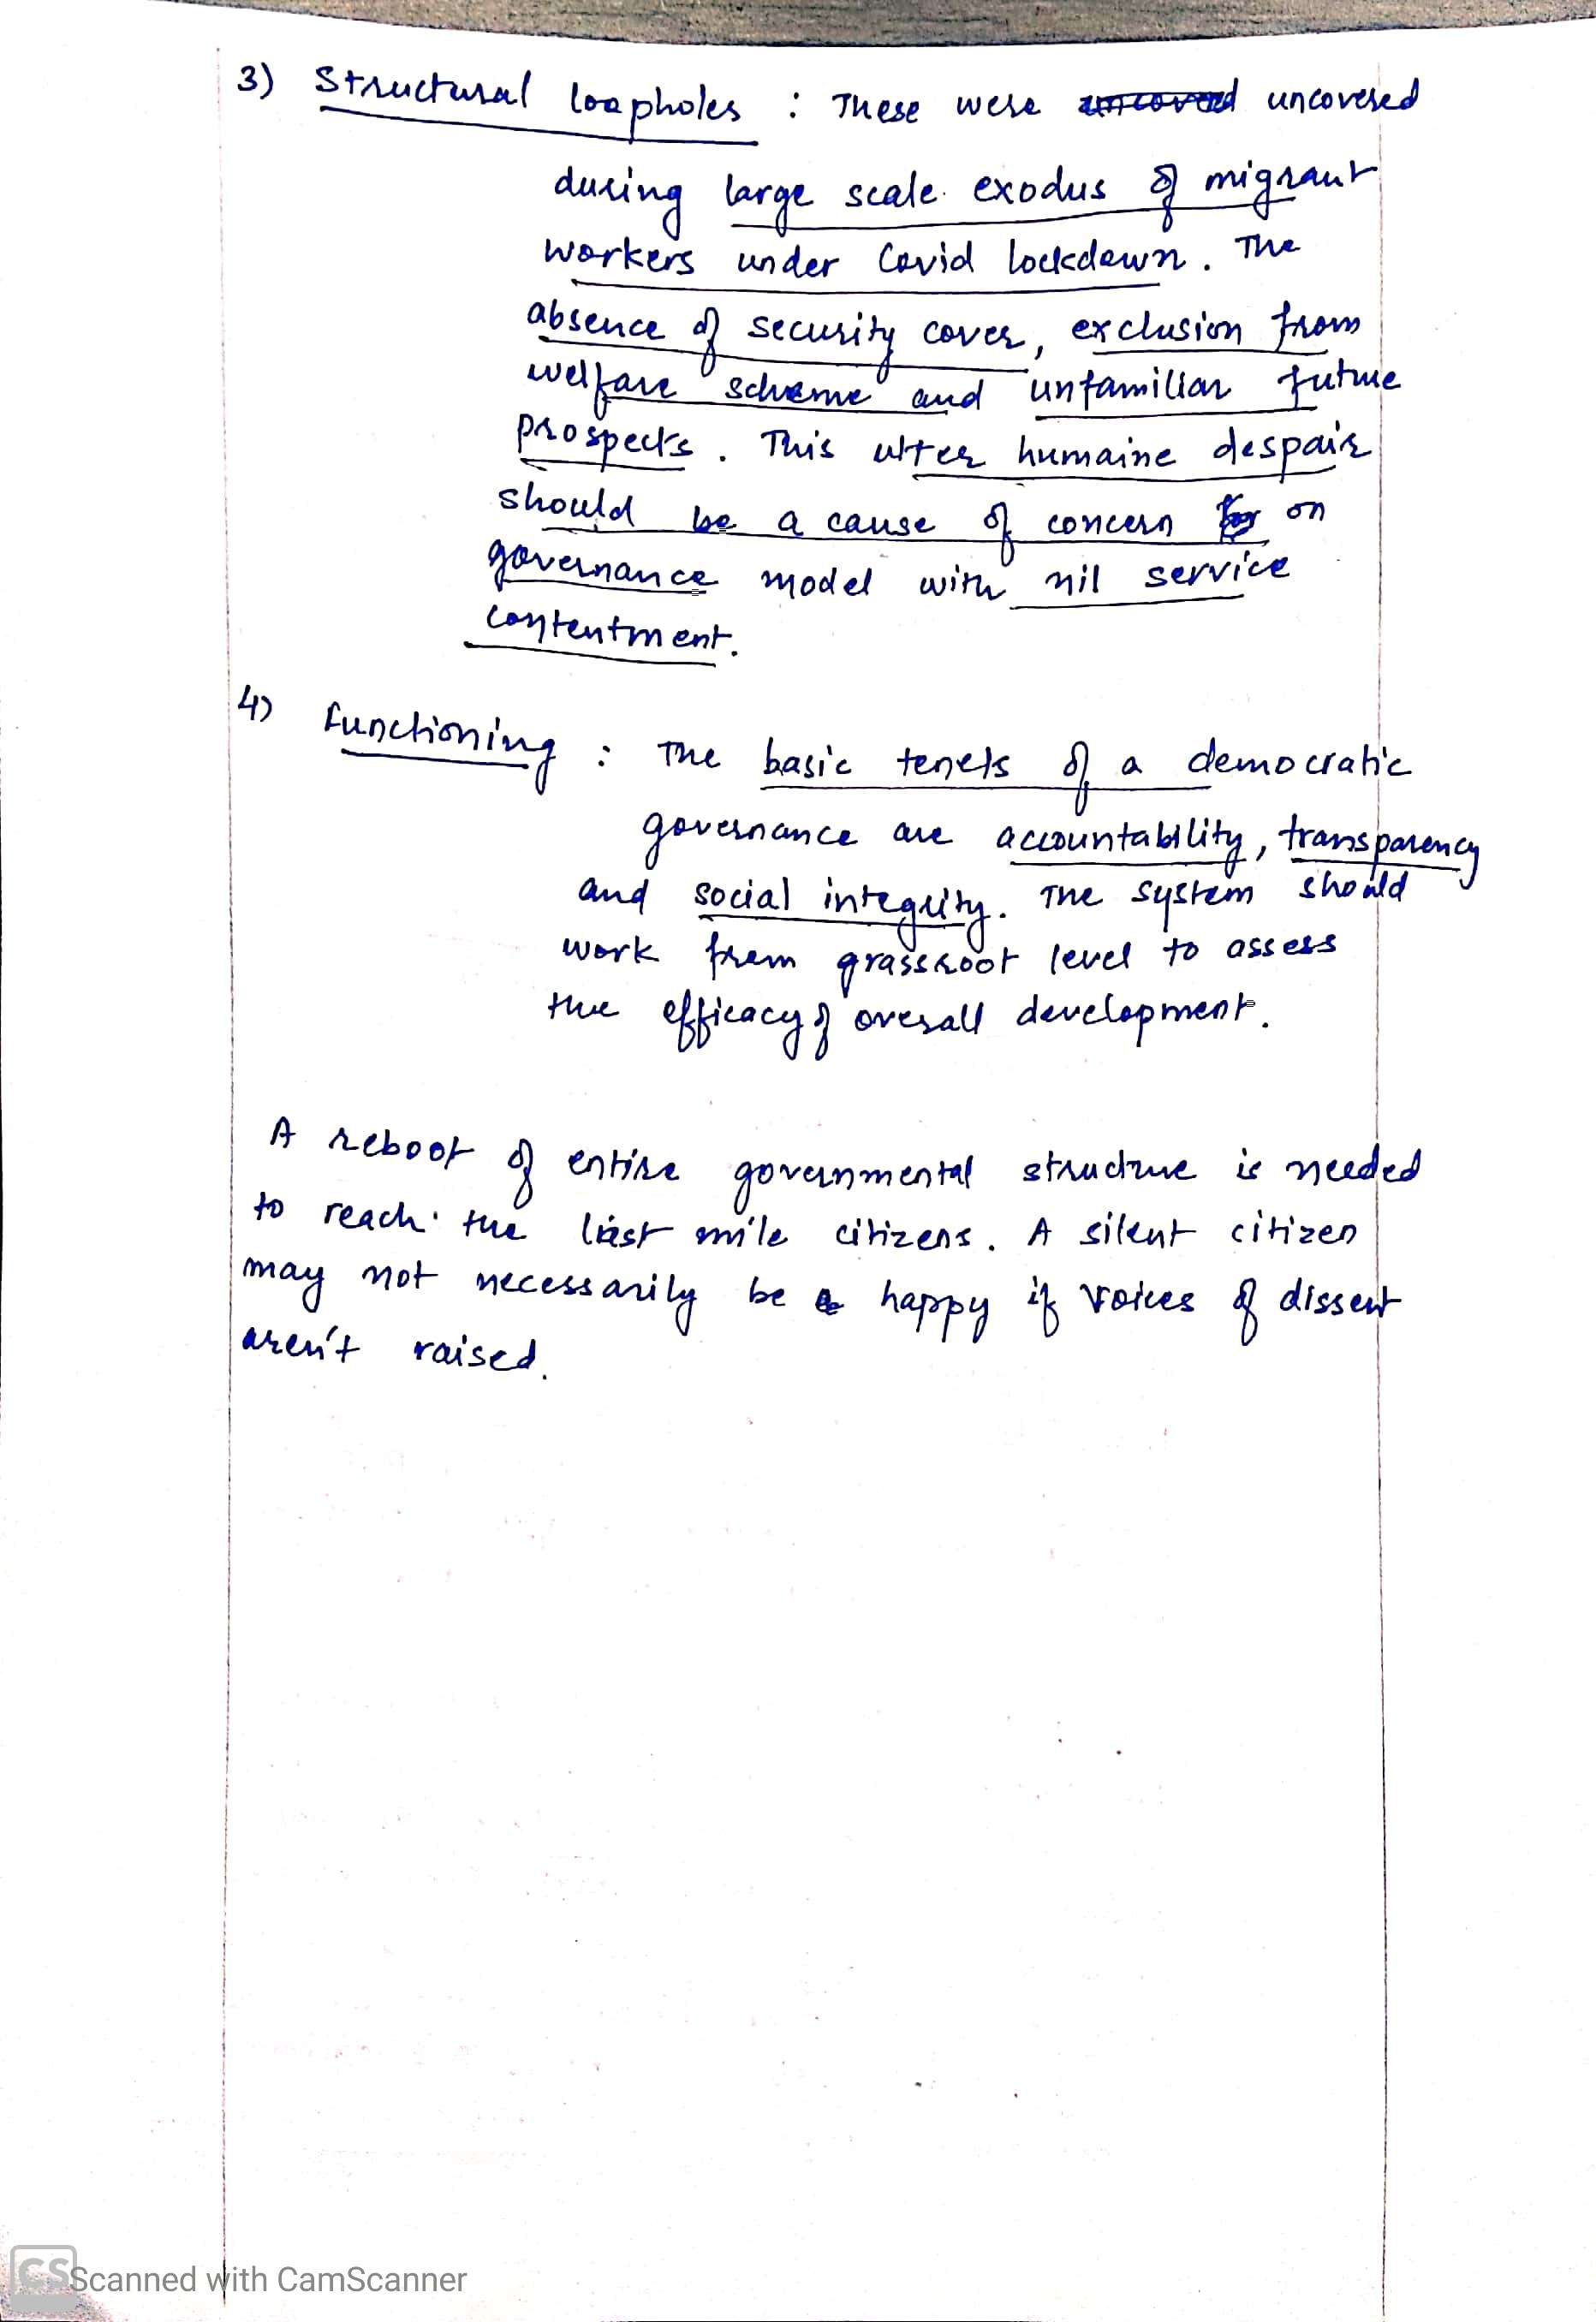 3) Structural loopholes : These were uncovered
during large scale exodus of migrant
workers under Covid lockdown. The
absence of security cover, exclusion from
welfare scheme and unfamiliar future
prospects. This utter humaine despair
should be a cause of concern for on
governance model with nil service
contentment.
4) Functioning : The basic tenets of a democratic
governance are accountability, transparency
and social integrity. The system should
work from grassroot level to assess
the efficacy of overall development.
A reboot of entire governmental structure is needed
to reach the last mile citizens. A silent citizen
may not necessarily be a happy if voices of dissent
aren't raised.
CS Scanned with CamScanner